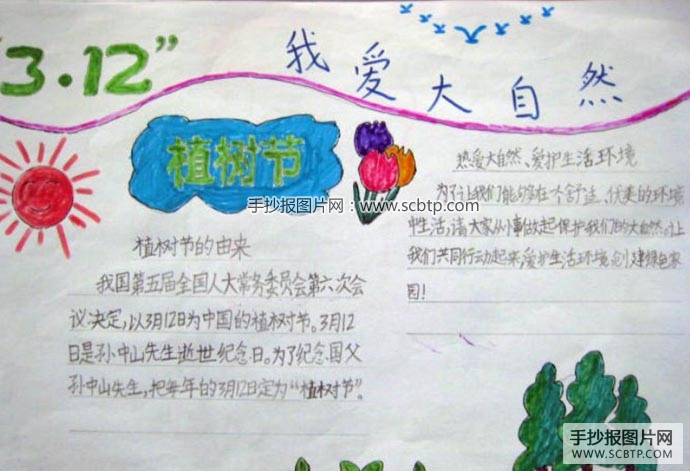 “3.12”
我爱大自然
植树节
手抄报图片网：www.scbtp.com
热爱大自然、爱护生活环境
为了让我们能够在个舒适、优美的环境
中生活，请大家从小事做起保护我们的大自然。让
我们共同行动起来，爱护生活环境，创建绿色家
园！
植树节的由来
我国第五届全国人大常务委员会第六次会
议决定，以3月12日为中国的植树节。3月12
日是孙中山先生逝世纪念日。为了纪念国父
孙中山先生，把每年的3月12日定为“植树节”。
手抄报图片网
WWW.SCBTP.COM